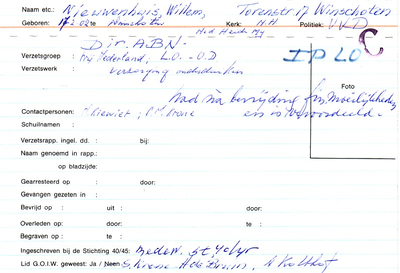 Naam etc.: Nieuwenhuis, Willem, Torenstr 17 Winschoten
Geboren: 17-2-02 te Winschoten Kerk: N.H Politiek: V.V.D
Ned Heide My
Dir. ABN-
Verzetsgroep : Vrij Nederland, L.O.-O.D IPLO C
Verzetswerk verzorging onderduikers
Foto
had na bevrijding fin. moeilijkheden
Contactpersonen: ; en is veroordeeld.
Schuilnamen :
Verzetsrapp. ingel. dd. : bij:
Naam genoemd in rapp.:
op bladzijde:
Gearresteerd op : door:
Gevangen gezeten in :
Bevrijd op : uit : door:
Overleden op: door: te :
Begraven op : te :
Ingeschreven bij de Stichting 40/45: medew. St 40/45
Lid G.O.I.W. geweest: Ja / Neen S. Kroese H de Bruin,